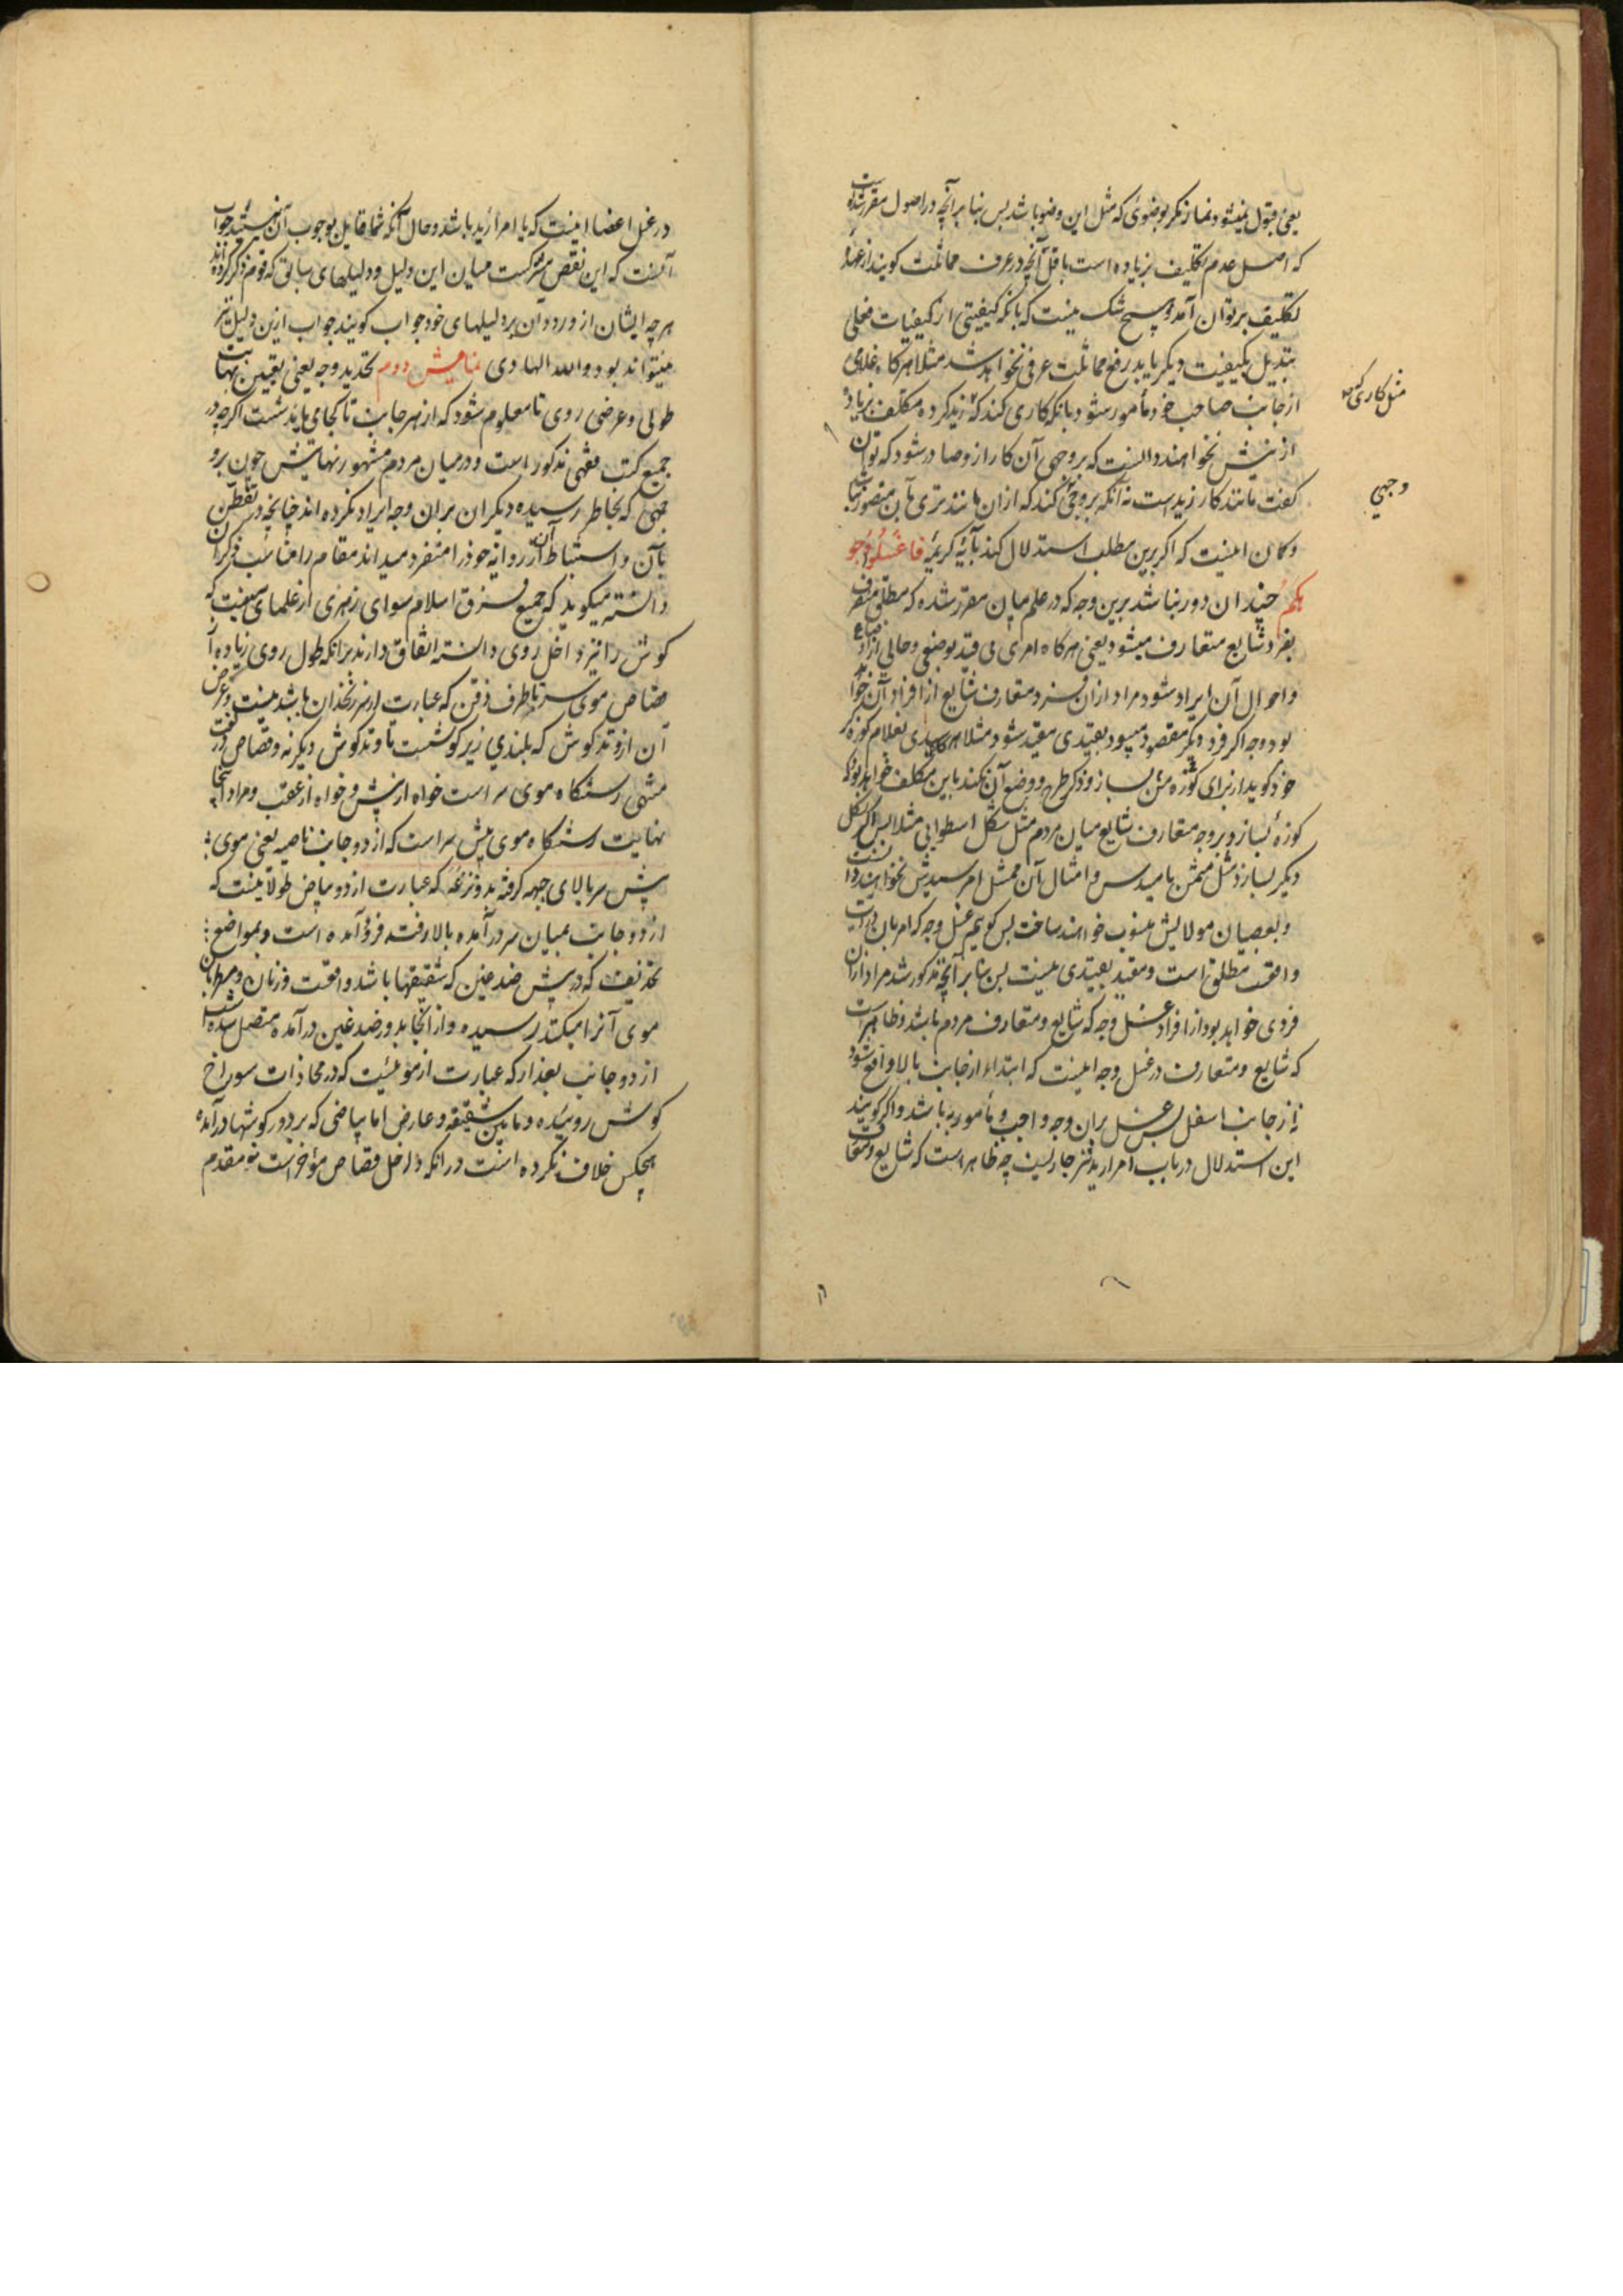 یعنی قبول نمیشود نماز مگر بوضوئی که مثل این وضو باشد پس بنا بر آنچه در اصول مقرر شده است
که اصل عدم تکلیف زیاده است باقل آنچه در عرف مماثلت کویند از عهدهٔ
تکلیف بر توان آمد و هیچ شک نیست که بانکه کیفیتی از کیفیات فعلی
تبدیل بکیفیت دیکر یابد رفع مماثلت عرفی نخواهد شد مثلا هر کاه غلامی
از جانب صاحب خود مأمور شود بانکه کاری کند که زید کرده مکلف بزیاده
ازینش نخواهند دانست که بر وجهی آن کار ازو صادر شود که توان
کفت مانند کار زید است نه آنکه بر وجهی کند که از آن مانندتری بآن متصور نباشد
و کمان اینست که اکر برین مطلب استدلال کند بآیهٔ کریمهٔ فاغسلوا وجو
هکم چندان دور نباشد برین وجه که در علم میان مقرر شده که مطلق منصرف
بفرد شایع متعارف میشود یعنی هر کاه امری بی قید بوضعی و حالی از اوضاع
و احوال آن ایراد شود مراد از آن فرد متعارف شایع از افراد آن خواهد
بود وجه اکر فرد دیکر مقصود میبود بقیدی مقید میشود مثلا هر کاه سیدی بغلام کوزه کر
خود کوید از برای کوزه من بساز و ذکر طرح و وضع آن نکند باین مکلف خواهد بود که
کوزهٔ بسازد بر وجه متعارف شایع میان مردم مثل شکل اسطوانی مثلا پس اکر بشکل
دیکر بسازد مثل مثمن یا مسدس و امثال آن ممتثل امر سیدش نخواهند دانست
و بعصیان مولایش منسوب خواهند ساخت پس کوییم غسل وجه که امر بان در آیت
واقعست مطلق است و مقید بقیدی نیست پس بنا بر آنچه مذکور شد مراد از آن
فردی خواهد بود از افراد غسل وجه که شایع و متعارف مردم باشد و ظاهر است
که شایع و متعارف در غسل وجه اینست که ابتداء از جانب بالا واقع شود
نه از جانب اسفل پس غسل بران وجه واجب و مأمور به باشد و اکر کویند
این استدلال در باب امرار ید نیز جاریست چه ظاهر است که شایع و متعارف
مثل کاری که
وجهی
در غسل اعضا اینست که با امرار ید باشد و حال آنکه شما قایل بوجوب آن نیستید جواب
آنست که این نقص مشترکست میان این دلیل و دلیلهای سابق که قوم ذکر کرده اند
هر چه ایشان از ورود آن بر دلیلهای خود جواب کویند جواب ازین دلیل نیز
میتواند بود و الله الهادی نمایش دوم تحدید وجه یعنی تعیین نهایت
طولی و عرضی روی تا معلوم شود که از هر جانب تا کجا میباید شست اکر چه در
جمیع کتب فقهی مذکور است و در میان مردم مشهور نهایتش چون بر و
جهی که بخاطر رسیده دیکران بران وجه ایراد نکرده اند چنانچه در تفطن
بآن و استنباط آن از روایه خود را منفرد میداند مقام را مناسب ذکر آن
دانسته میکوید که جمیع فرق اسلام سوای زهری از علمای سنت که
کوش را نیز داخل روی دانسته اتفاق دارند برانکه طول روی زیاده از
قصاص موی سر تا طرف ذقن که عبارت از سر زنخدان باشد نیست و عرض
آن از وتد کوش که بلندی زیر کوشست تا وتد کوش دیکر نه و قصاص در لغت
منتهی رستنکاه موی سر است خواه از پیش و خواه از عقب و مراد اینجا
نهایت رستنکاه موی پیش سر است که از دو جانب ناصیه یعنی موی
پیش سر بالای جبهه کرفته بدو نزعه که عبارت از دو بیاض طولانیست که
از دو جانب بمیان سر در آمده بالا رفته فرود آمده است و بمواضع
تحذیف که در پیش صدغین که شقیقهها باشد واقعست و زنان و مطربان
موی آنرا میکنند رسیده و از آنجا بدور صدغین در آمده متصل شده است
از دو جانب بعذار که عبارت از موئیست که در محاذات سوراخ
کوش روییده و مابین شقیقه و عارض اما بیاضی که بر دور کوشها در آمده
هیچکس خلاف نکرده است در انکه داخل قصاص مؤخر است نه مقدم